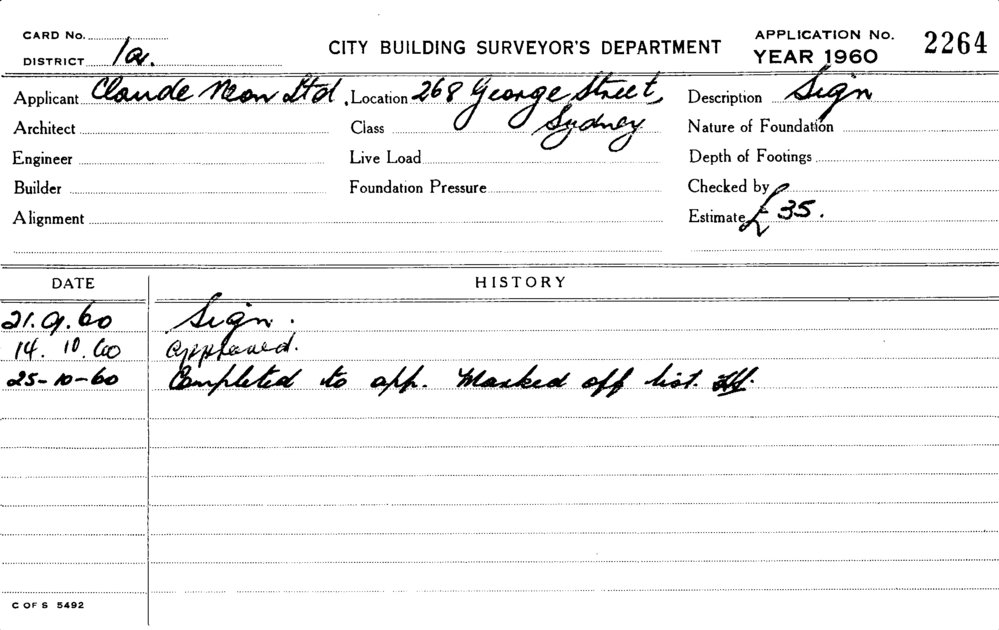 CARD No.
CITY BUILDING SURVEYOR'S DEPARTMENT
APPLICATION No. 2264
DISTRICT 1a.
YEAR 1960
Applicant Claude Neon Ltd. Location 268 George Street, Description Sign
Architect Class Sydney Nature of Foundation
Engineer Live Load Depth of Footings
Builder Foundation Pressure Checked by
Alignment Estimate £35.
DATE HISTORY
21.9.60 Sign.
14.10.60 approved.
25-10-60 Completed to app. Marked off list.
C OF S 5492